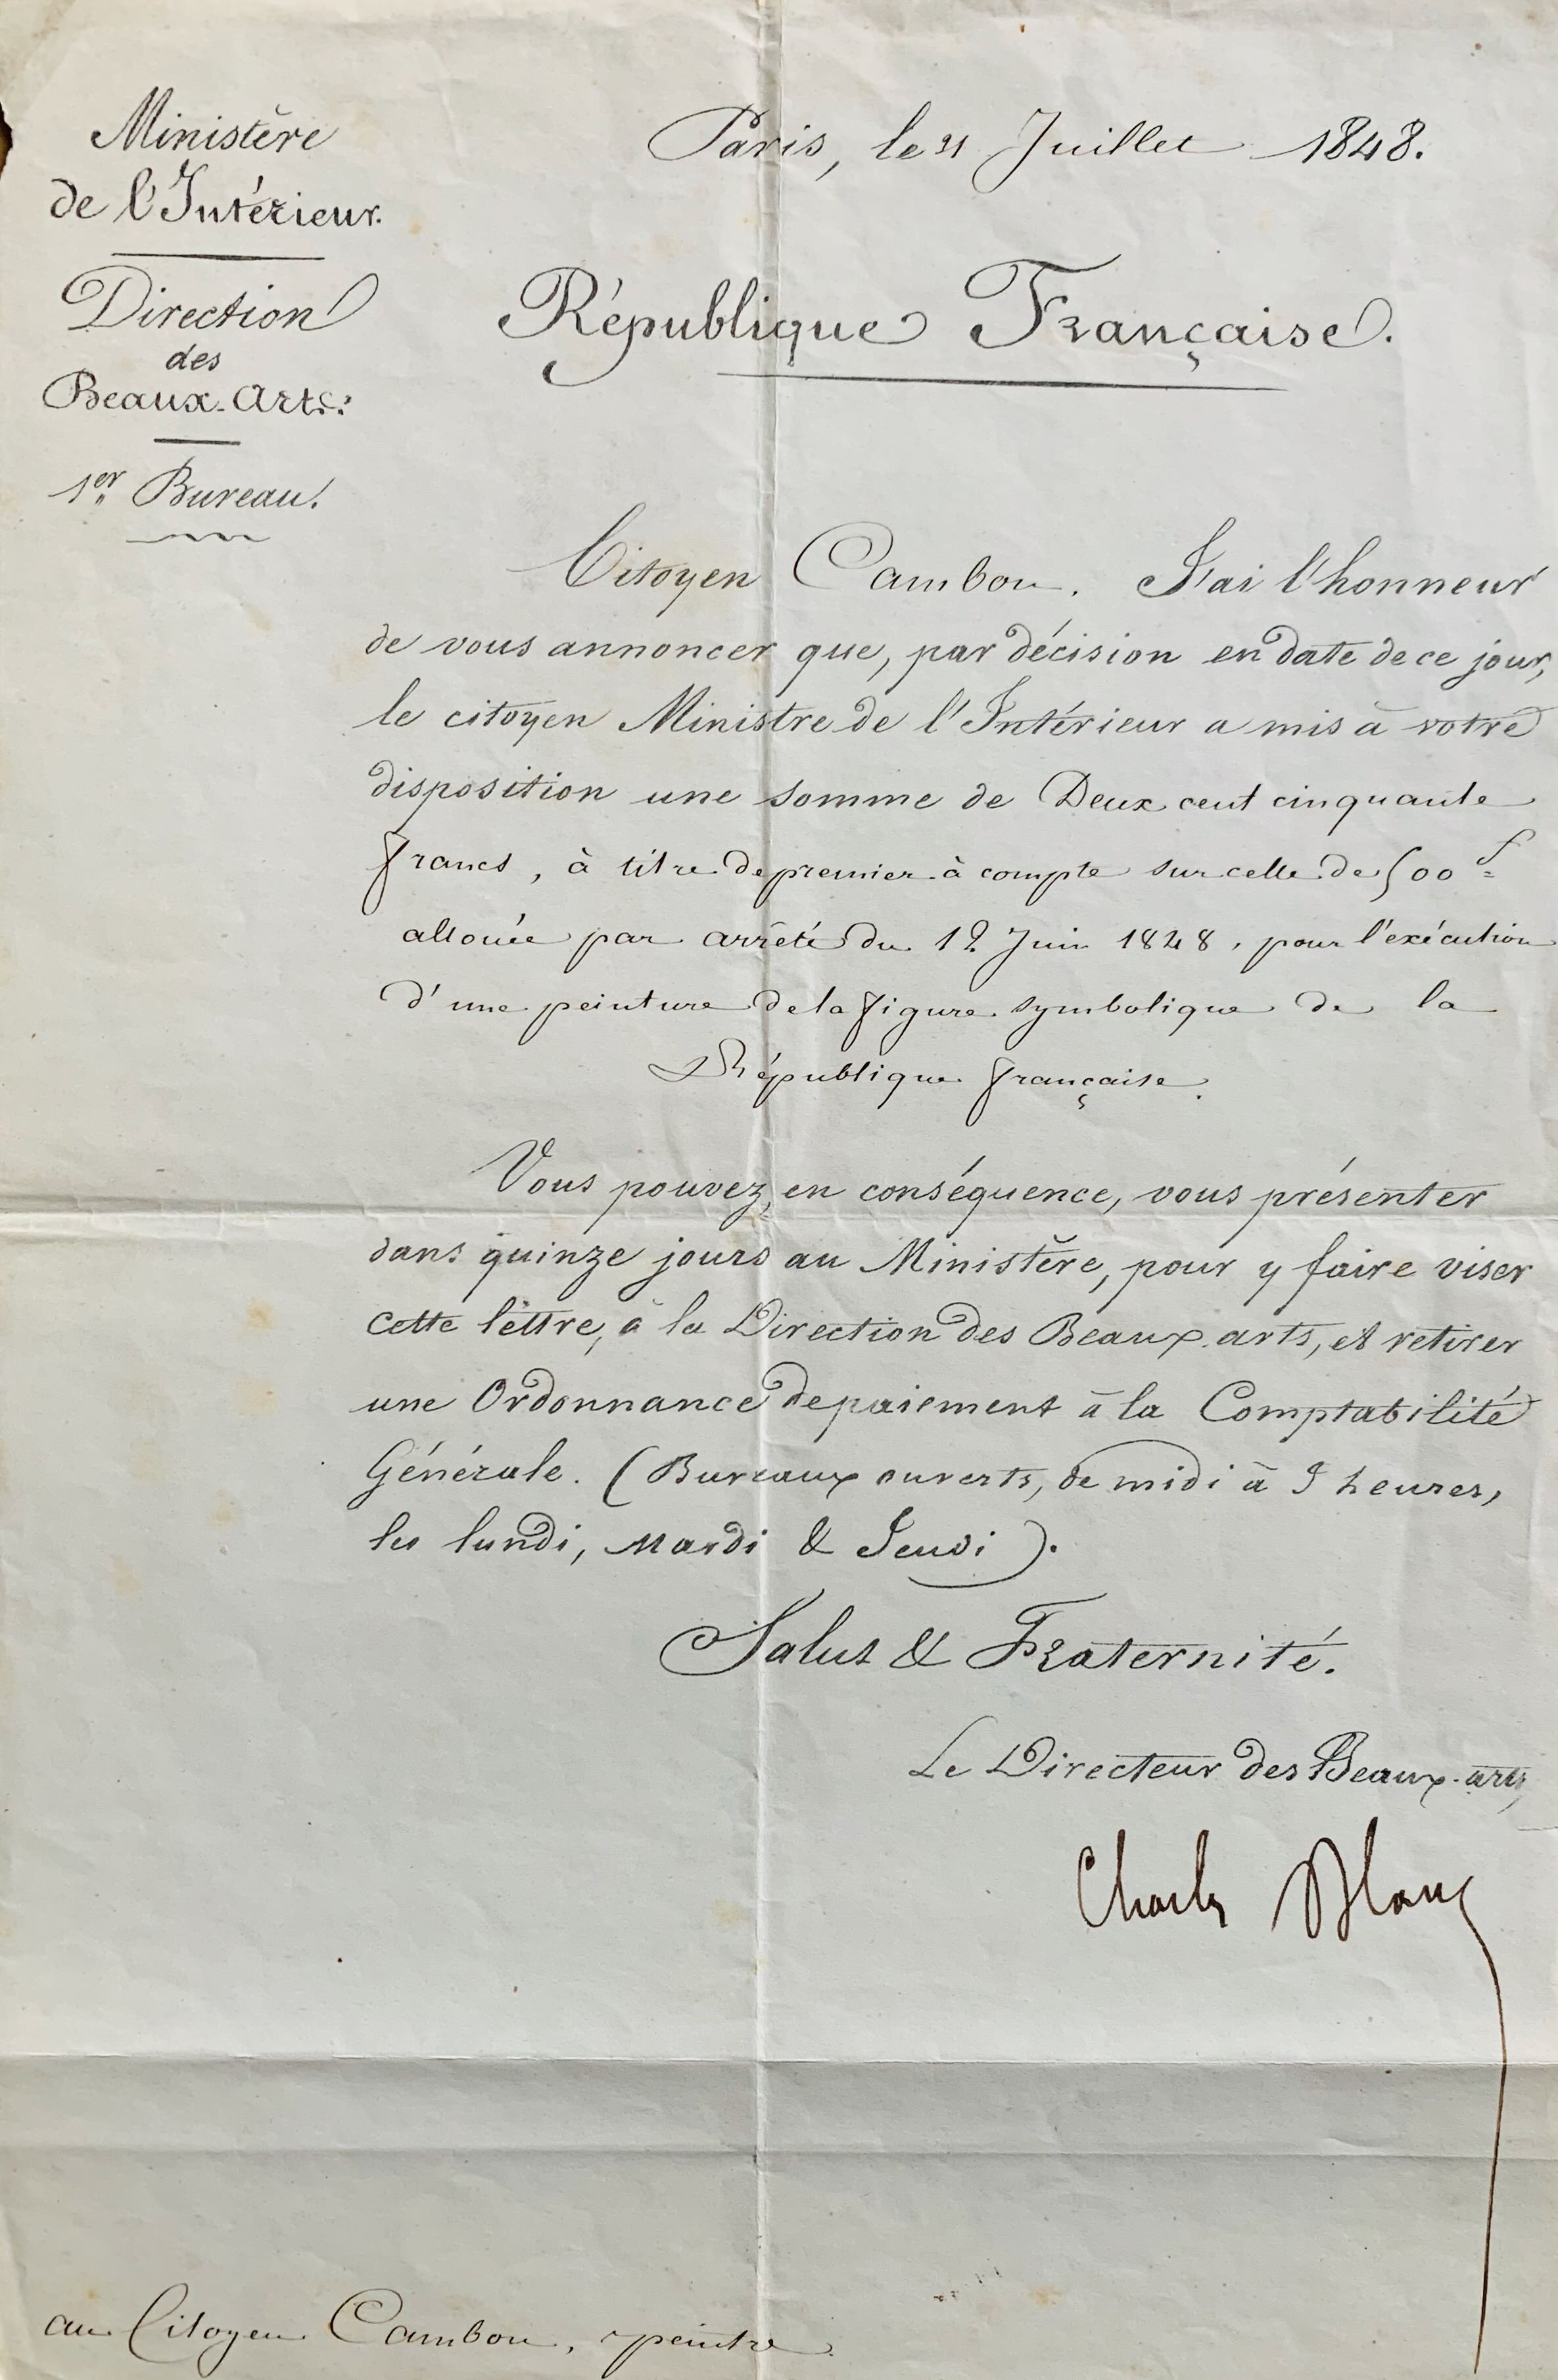 Ministère
de l'Intérieur.
Direction
des
Beaux-Arts.
1er Bureau.
Paris, le 21 Juillet 1848.
République Française.
Citoyen Cambon. J'ai l'honneur
de vous annoncer que, par décision en date de ce jour,
le citoyen Ministre de l'Intérieur a mis à votre
disposition une somme de Deux cent cinquante
francs, à titre de premier à compte sur celle de 500 f
allouée par arrêté du 12 Juin 1848, pour l'exécution
d'une peinture de la figure symbolique de la
République française.
Vous pouvez, en conséquence, vous présenter
dans quinze jours au Ministère, pour y faire viser
cette lettre, à la Direction des Beaux-arts, et retirer
une Ordonnance de paiement à la Comptabilité
Générale. (Bureaux ouverts, de midi à 3 heures,
les lundi, Mardi & Jeudi).
Salut & Fraternité.
Le Directeur des Beaux-arts,
Charles Blanc
au Citoyen Cambon, peintre